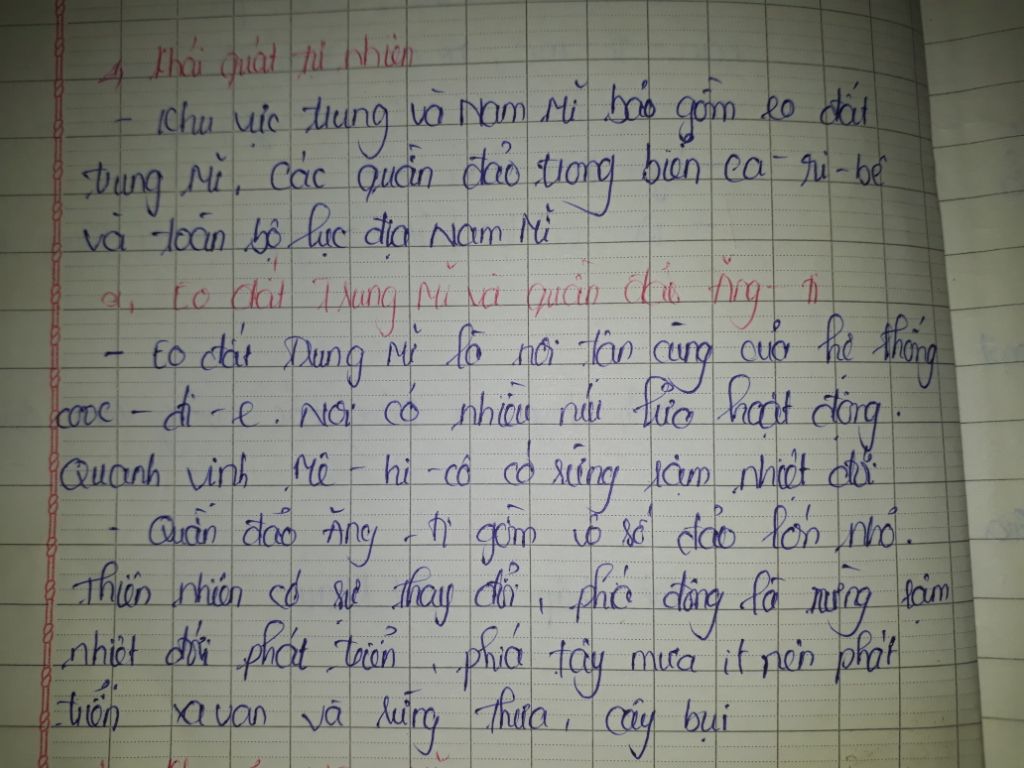 1, Khái quát tự nhiên
- Khu vực Trung và Nam Mĩ bao gồm eo đất
Trung Mĩ, các quần đảo trong biển ca-ri-bê
và toàn bộ lục địa Nam Mĩ
a, Eo đất Trung Mĩ và quần đảo Ăng-ti
- Eo đất Trung Mĩ là nơi tận cùng của hệ thống
cooc-đi-e. Nơi có nhiều núi lửa hoạt động.
Quanh vịnh Mê-hi-cô có rừng rậm nhiệt đới
- Quần đảo Ăng-ti gồm vô số đảo lớn nhỏ.
Thiên nhiên có sự thay đổi, phía đông là rừng rậm
nhiệt đới phát triển, phía tây mưa ít nên phát
triển xavan và rừng thưa, cây bụi